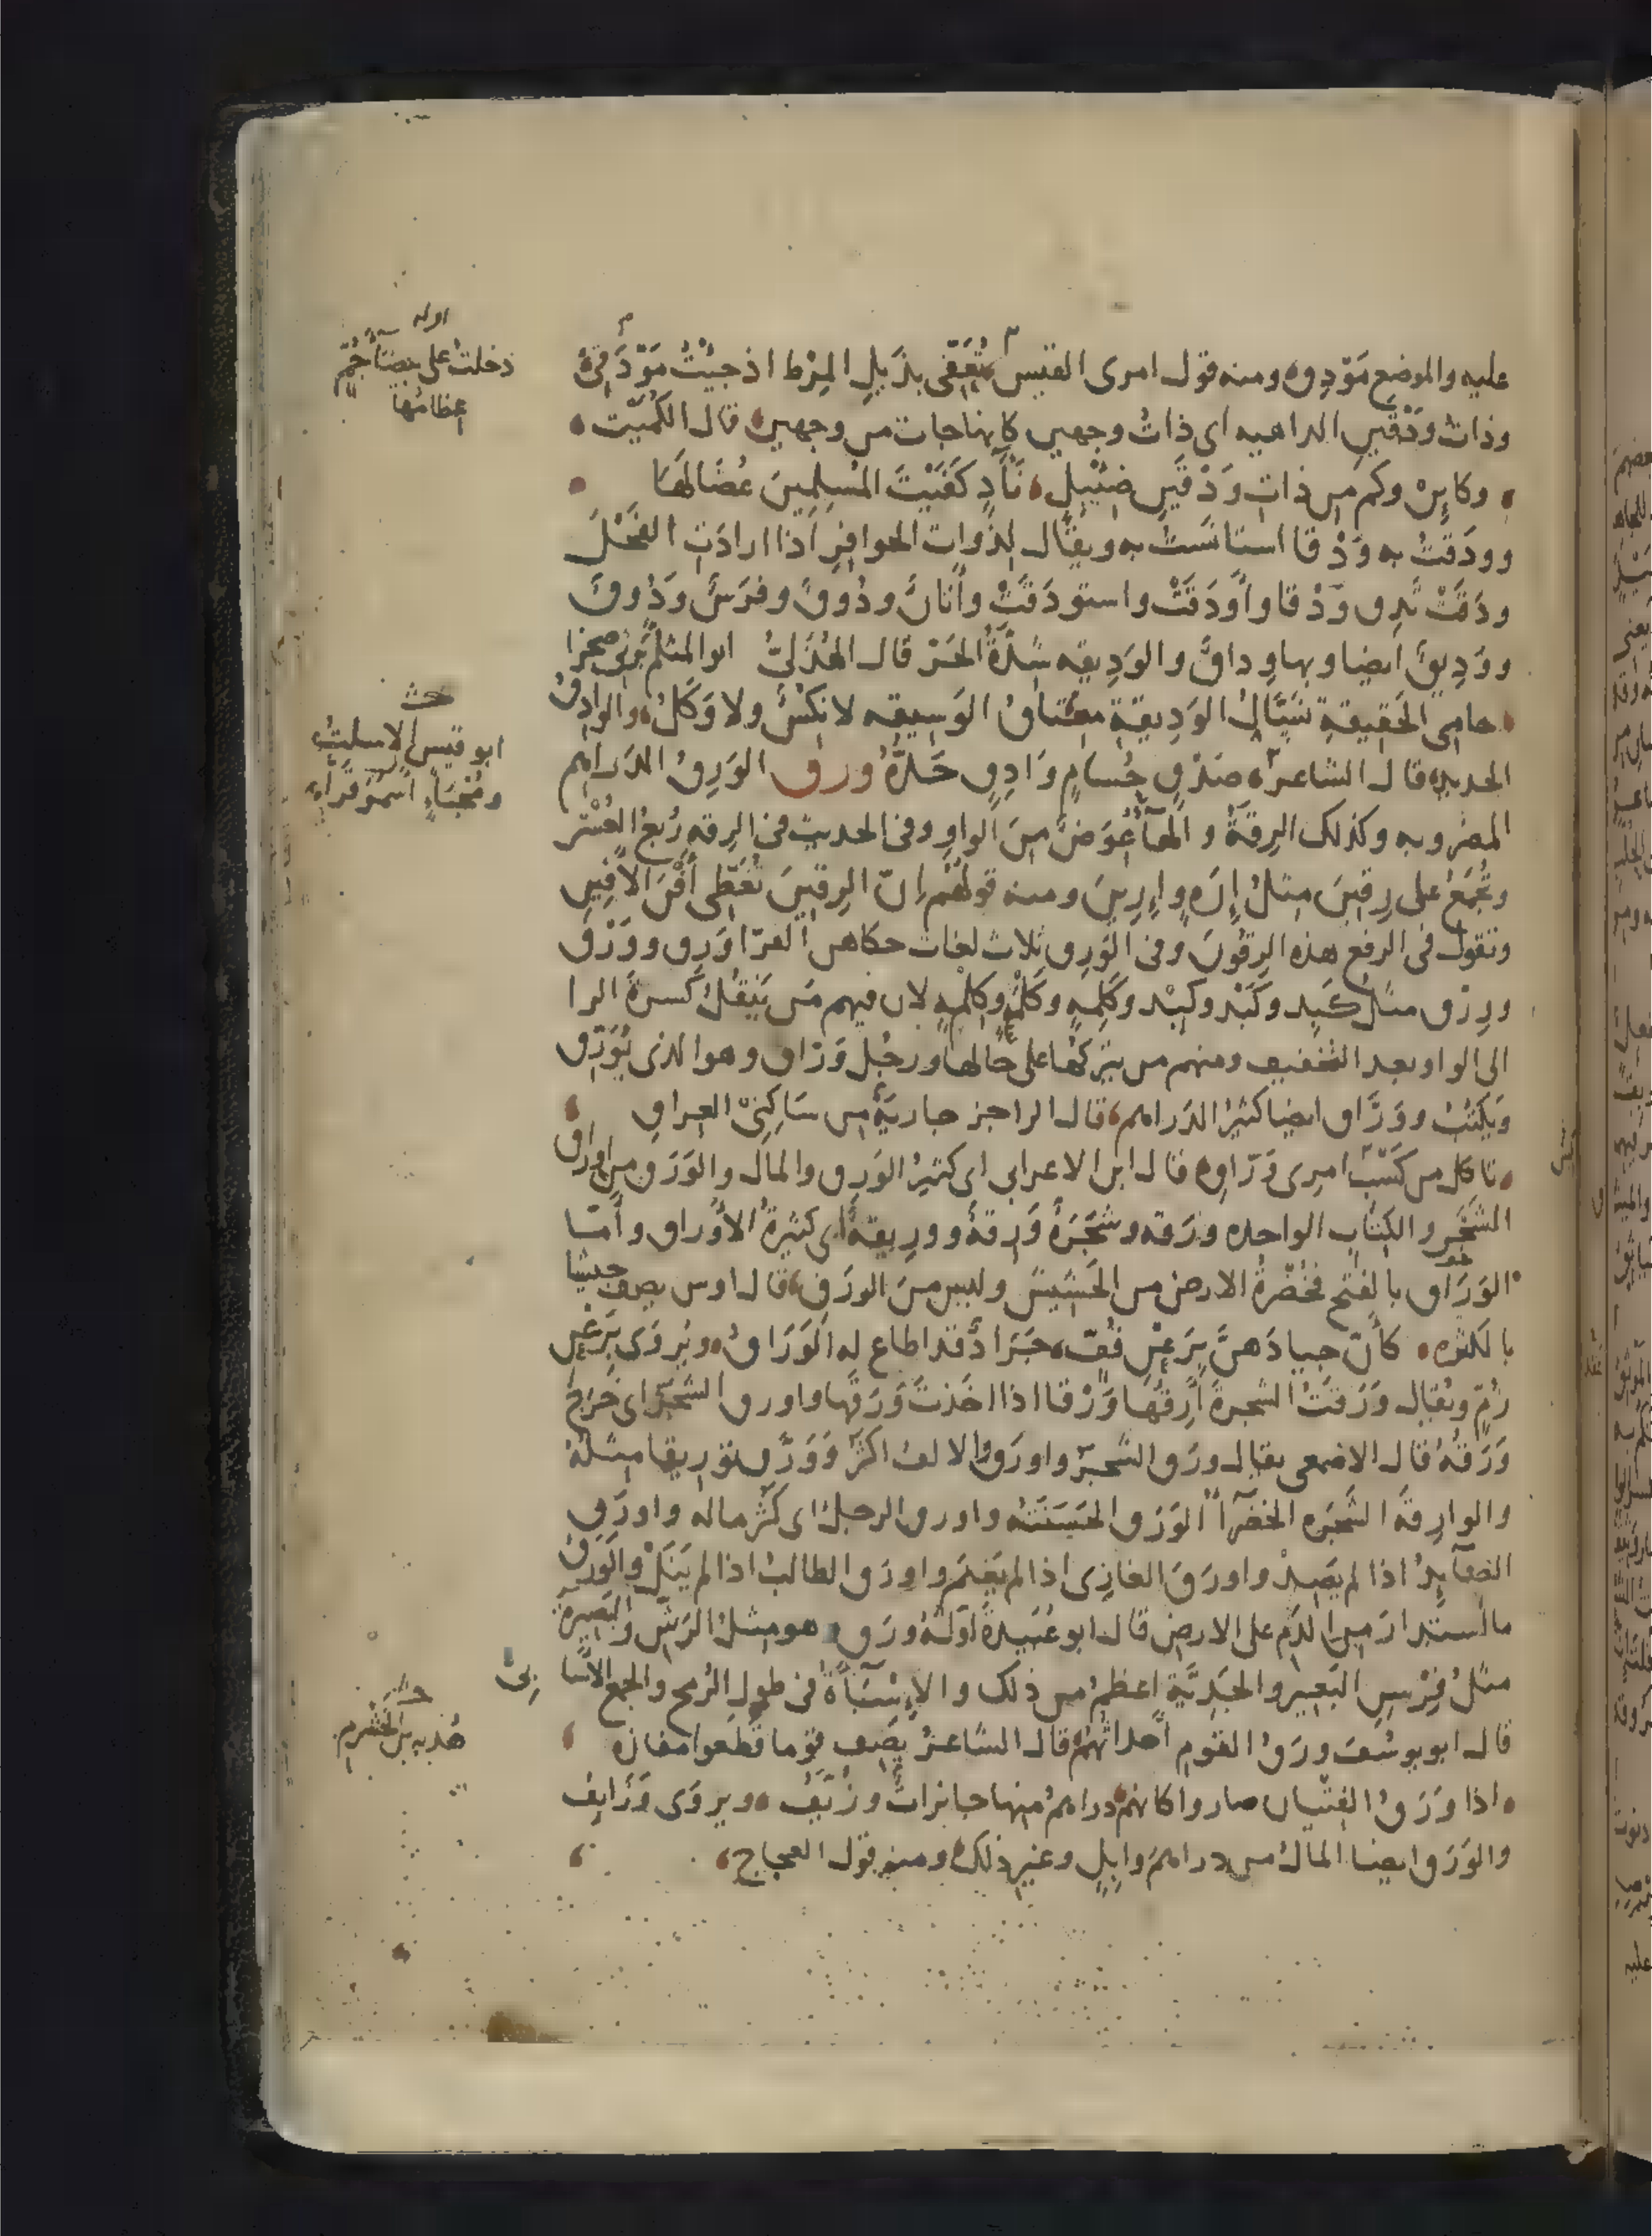 عليه والموضع مَوْدِق ومنه قول امرى القيس تُعَفِّى بذَيلِ المِرْط اذ جِئتُ مَوْدَقى
وذاتُ وَدْقَين الداهيه اى ذاتُ وجهين كانها جات من وجهين قال الكُمَيت
وكائِنْ وكم من ذاتِ وَدْقَينِ ضِئْبِلٍ نَآدٍ كَفَيْتَ المُسلِمِينَ عُضَالَها
وودَقتُ به وَدْقا استانَستُ به ويقال لِذَواتِ الحوافِرِ اذا ارادَتِ الفَحْلَ
ودَقَتْ تَدِق وَدْقا واَوْدَقَتْ واستودَقَتْ وأتانٌ ودُوقٌ وفرَسٌ وَدُوقٌ
ووَدِيقٌ ايضا وبها وِداقٌ والوَدِيقه شدَّةُ الحَرّ قال الهُذَلىُّ ابو المثلم يرثى صخرا
حامِى الحَقِيقةِ نَسَّالُ الوَدِيقةِ معتاقُ الوَسِيقه لا نِكْسٌ ولا وَكَلُ والوادِقُ
الحديد قال الشاعر صَدْقٍ حُسامٍ وَادِقٍ حَدُّهُ ورق الوَرِقُ الدَراهم
المضروبه وكذلك الرِقَةُ والهآ عُوَضٌ مِنَ الواوِ وفى الحديث فى الرِقه رُبعُ العُشْر
وتُجمَعُ على رِقينَ مِثلُ إِرَةٍ وإِرِينَ ومنه قولهُم إنّ الرِقِينَ تُغَطِّى أَفْنَ الأفِينِ
وتقول فى الرفع هذه الرِقُونَ وفى الوَرِق ثلاث لغات حكاهن الفرّا وَرِق ووَرْق
ووِرْق مثلُ كَبِد وكَبْد وكِبْد وكَلِمةٍ وكَلْمةٍ وكِلْمةٍ لان فيهم مَن يَنقُلُ كسرةَ الرا
الى الواو بعد التخفيف ومنهم من يتركُها على حالها ورجُل وَرّاق وهو الذى يُوَرِّق
وَيَكتُبُ ووَرَّاق ايضا كثيرُ الدَراهم قال الراجز جاريةٌ من سَاكِنِى العِراقِ
تاكل من كَسْبِ امرِى وَرّاقِ قال ابن الاعرابى اى كثيرُ الوَرِق والمال والوَرَق من اوراق
الشجَرِ والكِتابِ الواحده ورَقه وشَجَرةٌ وَرِقةٌ ووَرِيقةٌ اى كثيرةُ الأوراق وأمّا
الوَرَاق بالفتح فخُضْرةُ الارض من الحَشيش وليس منَ الورَقِ قال اوس يصف جيشا
بالكثره كأنّ جيادَهنَّ بِرَعْنِ قُفٍّ جَرَادٌ قد اطاع له الوَرَاقُ ويُروَى بِرَعْنِ
زُمٍّ ويُقال وَرَقتُ الشجرةَ أرِقُهَا وَرْقا اذا اخَذتَ وَرَقَها واورق الشجَرُ اى خَرَجَ
وَرَقهُ قال الاصمعى يقال ورَق الشجَرُ واورَق والالف اكثرُ ووَرَّق توريقا مِثلهُ
والوارِقةُ الشجَره الخضرآ الوَرَق الحَسَنَته واورق الرجلُ اى كثُر ماله واورَق
الصآيِدُ اذا لم يَصِدْ واورَقَ الغازِى اذا لم يَغنَم واورَق الطالبُ اذا لم يَنَلْ والوَرَق
ما استدارَ مِن الدَمِ على الارض قال ابو عُبَيدةَ اوّلُهُ ورَق وهو مثلُ الرَشّ والبَصِيرةُ
مثلُ فِرْسِن البَعِير والجَدِيَّة اعظمُ من ذلك والإسْبَاءَةُ فى طول الرُمح والجمع الاسَابىُّ
قال ابو يوسُفَ ورَقُ القوم أحداثُهُم قال الشاعرُ يَصِف قوما قَطَعوا مفازه
اذا ورَقُ الفِتْيان صاروا كانهم دراهمُ منها جايزاتٌ وزُيّفُ ويروَى وَزَايِفُ
والوَرَق ايضا المالُ من دراهمَ وإِبِلٍ وغيرِ ذلك ومنه قول العجاج
اوله
دخلتُ على بيضآ جُمٍّ
عِظامُها
ابو قيس بن الاسلت
ومُجنَاءٍ اسمَرَ قرّاعِ
هُدبه بن الخشرم